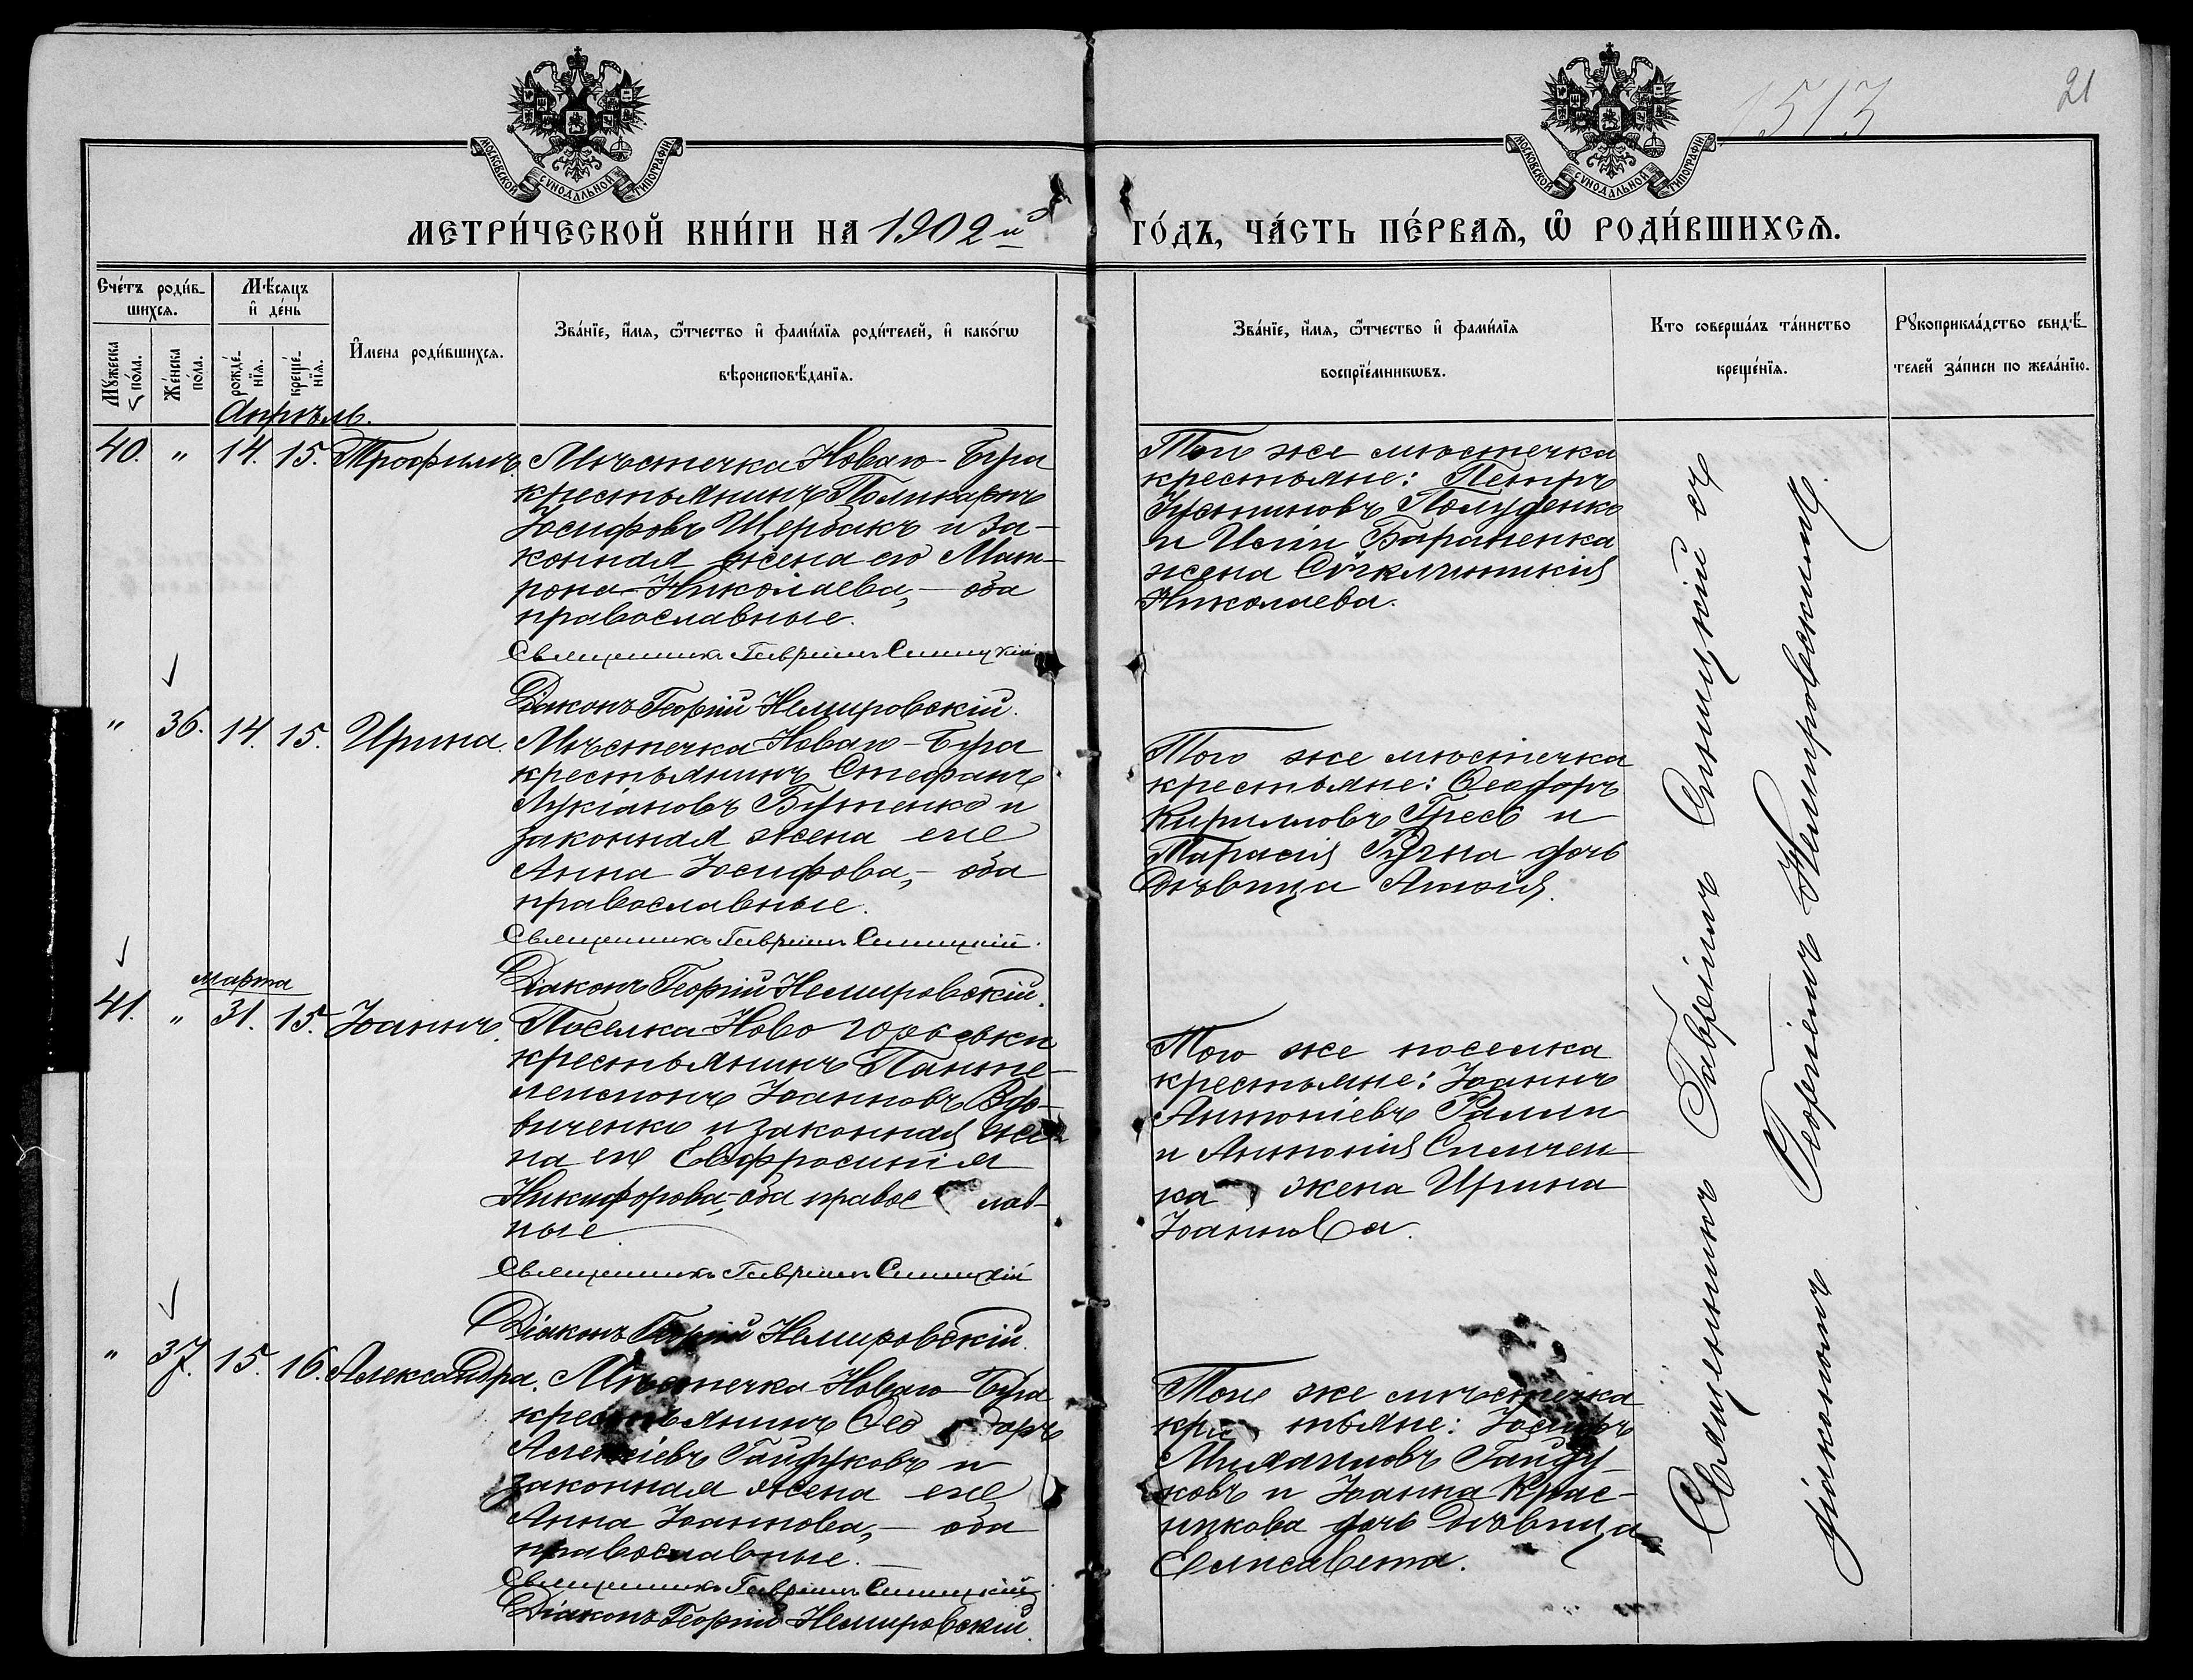 1513
21
МОСКОВСКОЙ СѴНОДАЛЬНОЙ ТИПОГРАФІИ
МОСКОВСКОЙ СѴНОДАЛЬНОЙ ТИПОГРАФІИ
МЕТРИ́ЧЕСКОЙ КНИ́ГИ НА 1902й
ГО́ДЪ, ЧА́СТЬ ПЕ́РВАѦ, Ѡ҆ РОДИ́ВШИХСѦ.
Сче́тъ роди́в-
шихсѧ.
Мѹ́жеска по́ла.
Же́нска по́ла.
Мѣ́сѧцъ
и҆ де́нь
рожде́-
нїѧ.
креще́-
нїѧ.
И҆мена роди́вшихсѧ.
Зва́нїе, и҆́мѧ, ѻ҆́тчество и҆ фами́лїѧ роди́телей, и҆ како́гѡ
вѣроисповѣ́данїѧ.
Зва́нїе, и҆́мѧ, ѻ҆́тчество и҆ фами́лїѧ
воспрїе́мникѡвъ.
Кто соверша́лъ та́инство
креще́нїѧ.
Рѹкоприкла́дство свидѣ́-
телей за́писи по жела́нїю.
Апрѣль.
40. " 14. 15. Трофимъ. Мѣстечка Новаго-Буга
крестьянинъ Поликарпъ
Іосифовъ Щербакъ и за-
конная жена его Мат-
рона Николаева,- оба
православные.
Священникъ Гавріилъ Синицкій
Діаконъ Георгій Немировскій.
Того же мѣстечка
крестьяне: Петръ
Іустиновъ Полуденко
и
жена
Николаева.
" 36. 14. 15. Ирина. Мѣстечка Новаго-Буга
крестьянинъ Стефанъ
Лукіановъ Бутенко и
законная жена его
Анна Іосифова,- оба
православные.
Священникъ Гавріилъ Синицкій.
Діаконъ Георгій Немировскій.
Того же мѣстечка
крестьяне: Ѳеодоръ
Кирилловъ Гресь и
Тарасія дочь
дѣвица
марта
41. " 31. 15. Іоаннъ. Поселка Ново
крестьянинъ Панте-
леимонъ Іоанновъ Вдо-
виченко и законная же-
на его Евфросинія
Никифорова,-оба правос лав-
ные
Священникъ Гавріилъ Синицкій
Діаконъ Георгій Немировскій.
Того же поселка
крестьяне: Іоаннъ
Антоніевъ
и Антонія
ка жена Ирина
Іоаннова.
" 37. 15. 16. Александра. Мѣстечка Новаго-Буга
крестьянинъ Ѳео доръ
Алексіевъ Гайдуковъ и
законная жена его
Анна Іоаннова,- оба
православные.-
Священникъ Гавріилъ Синицкій
Діаконъ Георгій Немировскій
Того же мѣстечка
крес тьяне: Іосифъ
Михаиловъ Гайду-
ковъ и Іоанна Крас-
никова дочь дѣвица
Елисавета.
Священникъ Гавріилъ Синицкій съ
діакономъ Георгіемъ Немировскимъ.